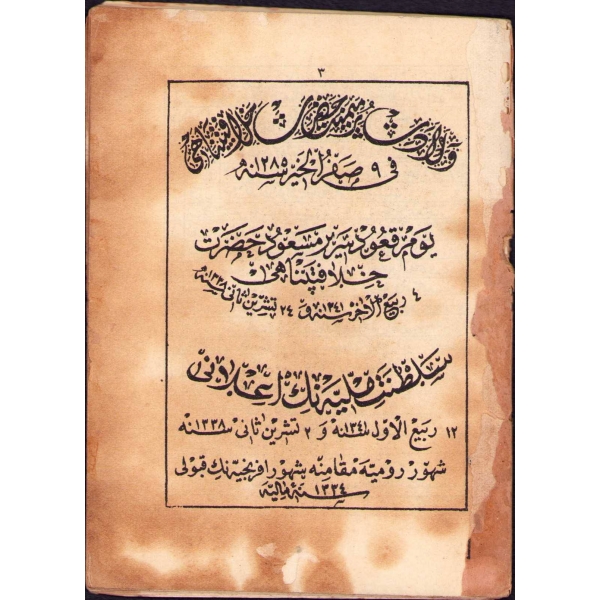 ٣
ولادت پر ميمنت حضرت خلافتپناهی
فی ٩ صفر الخير سنه ١٢٨٥
يوم قعود سرير مسعود حضرت
خلافتپناهی
٤ ربيع الآخر سنه ١٣٤١ و ٢٤ تشرين ثانی سنه
سلطنت مليه نك اعلانی
١٢ ربيع الاول سنه ١٣٤١ و ٢ تشرين ثانی سنه ١٣٣٨
شهور روميه مقامنه شهور افرنجيه نك قبولی
سنۀ ماليه ١٣٣٤